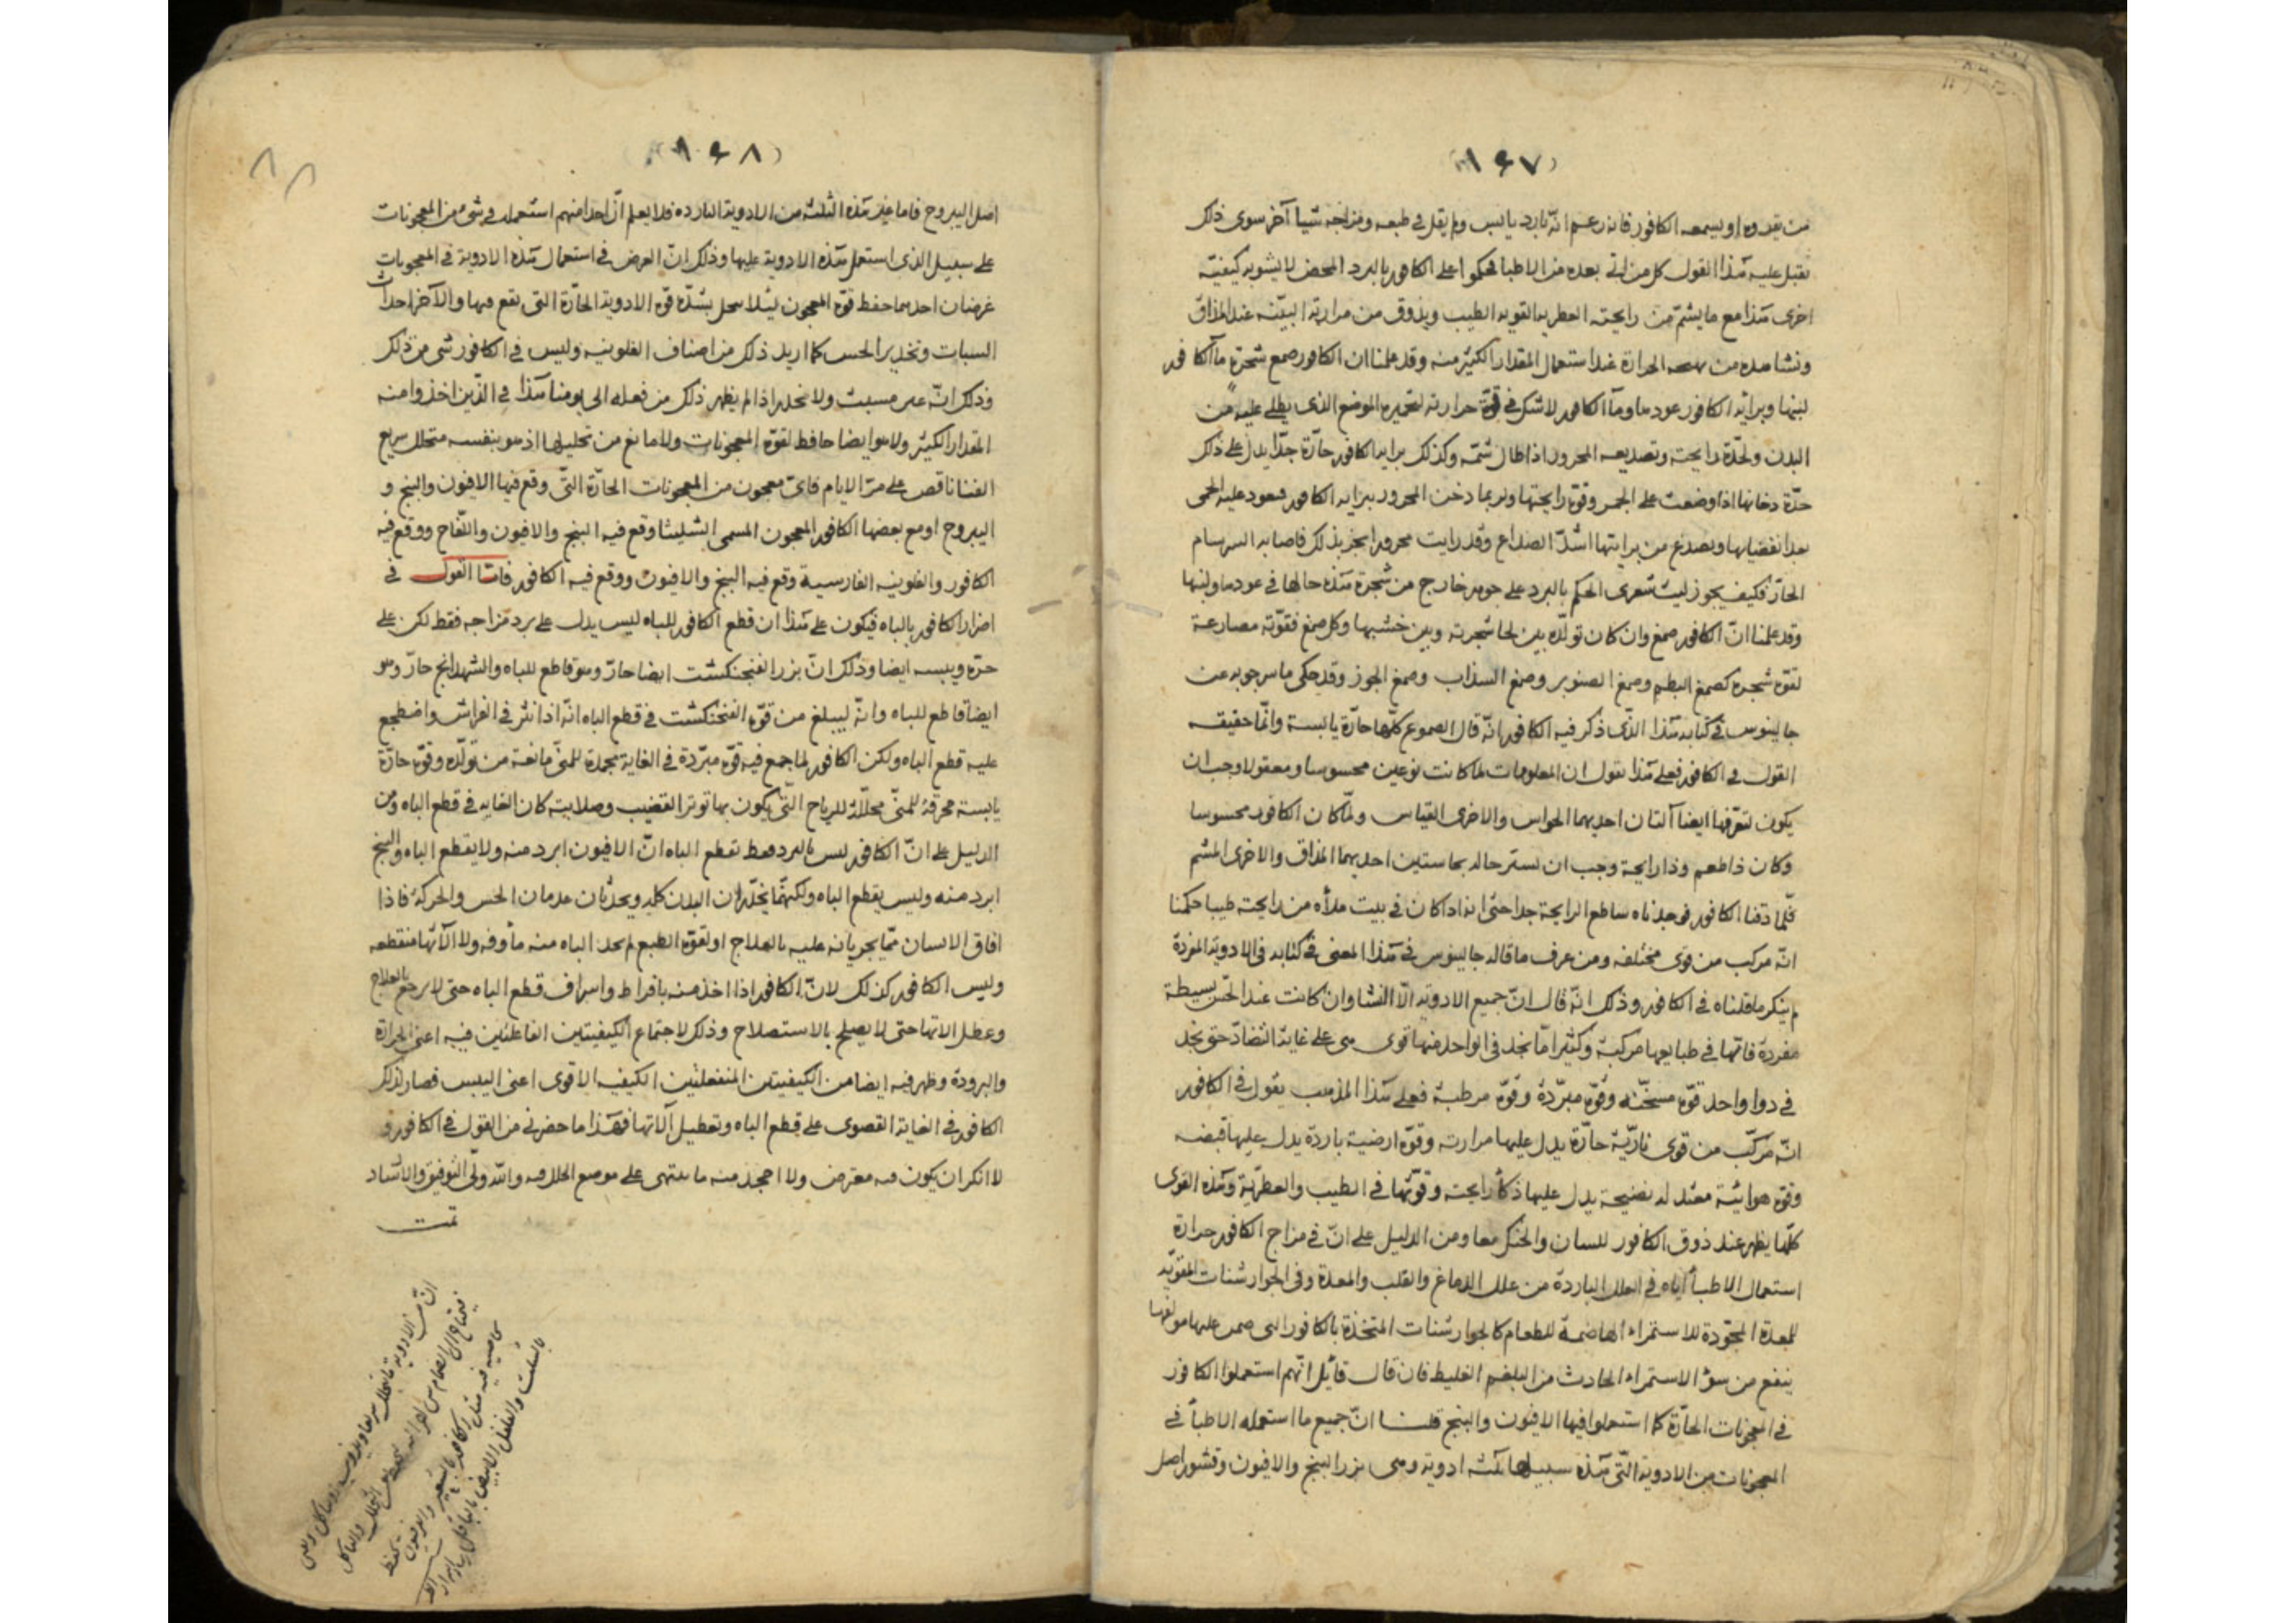 (١٦٧)
من يقدره او يسمعه الكافور فانه زعم انّه بارد يابس ولم يقل في طبعه ومزاجه شيأ آخر سوى ذلك
يقبل عليه هذا القول كل من اتى بعده من الاطبا فحكموا على الكافور بالبرد المحض لا يشوبه كيفيّة
اخرى هذا مع ما يشتمّ من رايحته العطرية القوية الطيب ويذوق من مرارته البيّنه عند المذاق
ونشاهده من الحرارة عند استعمال المقدار الكثير منه وقد علمنا ان الكافور صمغ شجرة مآ الكافور
لبنها وبراية الكافور عودها ومآ الكافور لا شك في قوّة حرارته لتحميره الموضع الذى يطلى عليه من
البدن ولحدّة رايحته وتصديعه المحرور اذا طال شمّه وكذلك براية الكافور حارّة جدّا يدل على ذلك
حدّة دخانها اذا وضعت على الجمر وقوّة رايحتها وربما دخن المحرور ببراية الكافور فيعود عليه الحمى
بعد انقضايها ويصدع من برايتها اشدّ الصداع وقد رايت محرورا بخر بذلك فاصابه السرسام
الحارّ فكيف يجوز ليت شعرى الحكم بالبرد على جوهر خارج من شجرة هذه حالها في عودها ولبنها
وقد علمنا انّ الكافور صمغ وان كان تولّده بين لحا شجرته وبين خشبها وكل صمغ فقوّته مضارعة
لقوّة شجره كصمغ البطم وصمغ الصنوبر وصمغ السذاب وصمغ الجوز وقد حكى ماسرجويه عن
جالينوس في كتابه هذا الذّى ذكر فيه الكافور انّه قال الصموغ كلّها حارّة يابسة وانّما حقيقه
القول في الكافور فعلى هذا نقول ان المعلومات لما كانت نوعين محسوسا ومعقولا وجب ان
يكون لتعرّفها ايضا آلتان احديهما الحواس والاخرى القياس ولمّا كان الكافور محسوسا
وكان ذا طعم وذا رايحة وجب ان نستبر حاله بحاستين احديهما المذاق والاخرى المشم
فلمّا ذقنا الكافور فوجدناه ساطع الرايحة جدا حتى انه اذا كان في بيت ملأه من رايحته طيبا حكمنا
انّه مركب من قوى مختلفه ومن عرف ما قاله جالينوس في هذا المعنى في كتابه في الادوية المفردة
لم ينكر ما قلناه في الكافور وذلك انّه قال انّ جميع الادويه الّا النشا وان كانت عند الحسّ بسيطة
مفردة فانّها في طبايعها مركبة وكثيرا ما نجد في الواحد منها قوى هى على غاية التضادّ حتى نجد
في دوا واحد قوّة مسخّنه وقوّة مبرّدة وقوّة مرطبة فعلى هذا المذهب يقول في الكافور
انّه مركّب من قوى ناريّة حارّة يدل عليها مرارته وقوّة ارضية باردة يدل عليها قبضه
وقوّة هوائيّة معتدلة نضيجة يدل عليها ذكأ رايحته وقوّتها في الطيب والعطريّة وهذه القوى
كلّها يظهر عند ذوق الكافور للسان والحنك معا ومن الدليل على انّ في مزاج الكافور حرارة
استعمال الاطبأ ايّاه في العلل الباردة من علل الدماغ والقلب والمعدة وفي الجوارشنات المقويّه
للمعدة المجوّدة للاستمراء الهاضمة للطعام كالجوارشنات المتخذة بالكافور التى
ينفع من سؤ الاستمراء الحادث من البلغم الغليظ فان قال قايل انّهم استعملوا الكافور
في المعجونات الحارّة كما استعملوا فيها الافيون والبنج قلنا انّ جميع ما استعمله الاطبأ في
المعجونات من الادوية التّى هذه سبيلها ثلثه ادوية وهى بزر البنج والافيون وقشور اصل
(١٦٨)
اصل اليبروح فاما غير هذه الثلثه من الادوية البارده فلا يعلم انّ احدا منهم استعمله في شى من المعجونات
على سبيل الذى استعمل هذه الادوية عليها وذلك انّ الغرض في استعمال هذه الادوية في المعجونات
غرضان احدهما حفظ قوّة المعجون ليلا ينحل بشدّة قوّة الادوية الحارّة التى تقع فيها والآخر احداث
السبات وتخدير الحس كما اريد ذلك من اصناف الفلونيه وليس في الكافور شى من ذلك
وذلك انّه غير مسبت ولا مخدر اذ لم يظهر ذلك من فعله الى يومنا هذا في الذّين اخذوا منه
المقدار الكثير ولا هو ايضا حافظ لقوّة المعجونات ولا مانع من تحليلها اذ هو بنفسه متحلل سريع
الفنا ناقص على مرّ الايام فاىّ معجون من المعجونات الحارّة التّى وقع فيها الافيون والبنج و
اليبروح او مع بعضها الكافور المعجون المسمى الشليثا وقع فيه البنج والافيون واللّفاح ووقع فيه
الكافور والفلونيه الفارسية وقع فيه البنج والافيون ووقع فيه الكافور فامّا القول في
اضرار الكافور بالباه فيكون على هذا ان قطع الكافور للباه ليس يدل على برد مزاجه فقط لكن على
حرّه ويبسه ايضا وذلك انّ بزر الفنجنكشت ايضا حارّ وهو قاطع للباه والشهدانج حارّ وهو
ايضا قاطع للباه وانّه ليبلغ من قوّة الفنجنكشت في قطع الباه انّه اذا نثر في الفراش واضطجع
عليه قطع الباه ولكن الكافور لما جمع فيه قوّة مبرّدة في الغاية مجمدة للمنىّ مانعة من تولّده وقوّة حارّة
يابسة محرقة للمنىّ محلّلة للرياح التّى يكون بها توتر القضيب وصلابته كان الغايه في قطع الباه ومن
الدليل على انّ الكافور ليس بالبرد فقط يقطع الباه انّ الافيون ابرد منه ولا يقطع الباه والبنج
ابرد منه وليس يقطع الباه ولكنهّما يخدّران البدن كله ويحدثان عدمان الحس والحركة فاذا
افاق الانسان ممّا يجريانه عليه بالعلاج او لقوّة الطبع لم يجد الباه منه مأوفه ولا آلاتها منقطعه
وليس الكافور كذلك لانّ الكافور اذا اخذ منه بافراط واسراف قطع الباه حتى لا يرجع بالعلاج
وعطل الاتها حتى لا يصلح بالاستصلاح وذلك لاجتماع الكيفيتين الفاعلتين فيه اعنى الحرارة
والبرودة وظهر فيه ايضا من الكيفيتين المنفعلتين الكيفيه الاقوى اعنى اليبس فصار لذلك
الكافور في الغاية القصوى على قطع الباه وتعطيل آلاتها فهذا ما حضرنى من القول في الكافور و
لا انكر ان يكون فيه معترض ولا احجد منه ما ينتهى على موضع الخلل فيه والله ولىّ التوفيق والارشاد
تمت
انّ من الادويه ما يتحلل سريعا